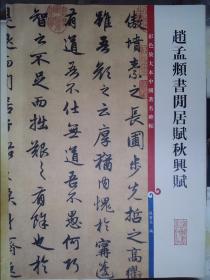 趙孟頫書閒居賦秋興賦
彩色放大本中國著名碑帖
傲墳素之長圃步先哲之高衢
雖吾顏之云厚猶內愧於甯蘧
有道吾不仕無道吾不愚何巧
智之不足而拙艱之有餘也於